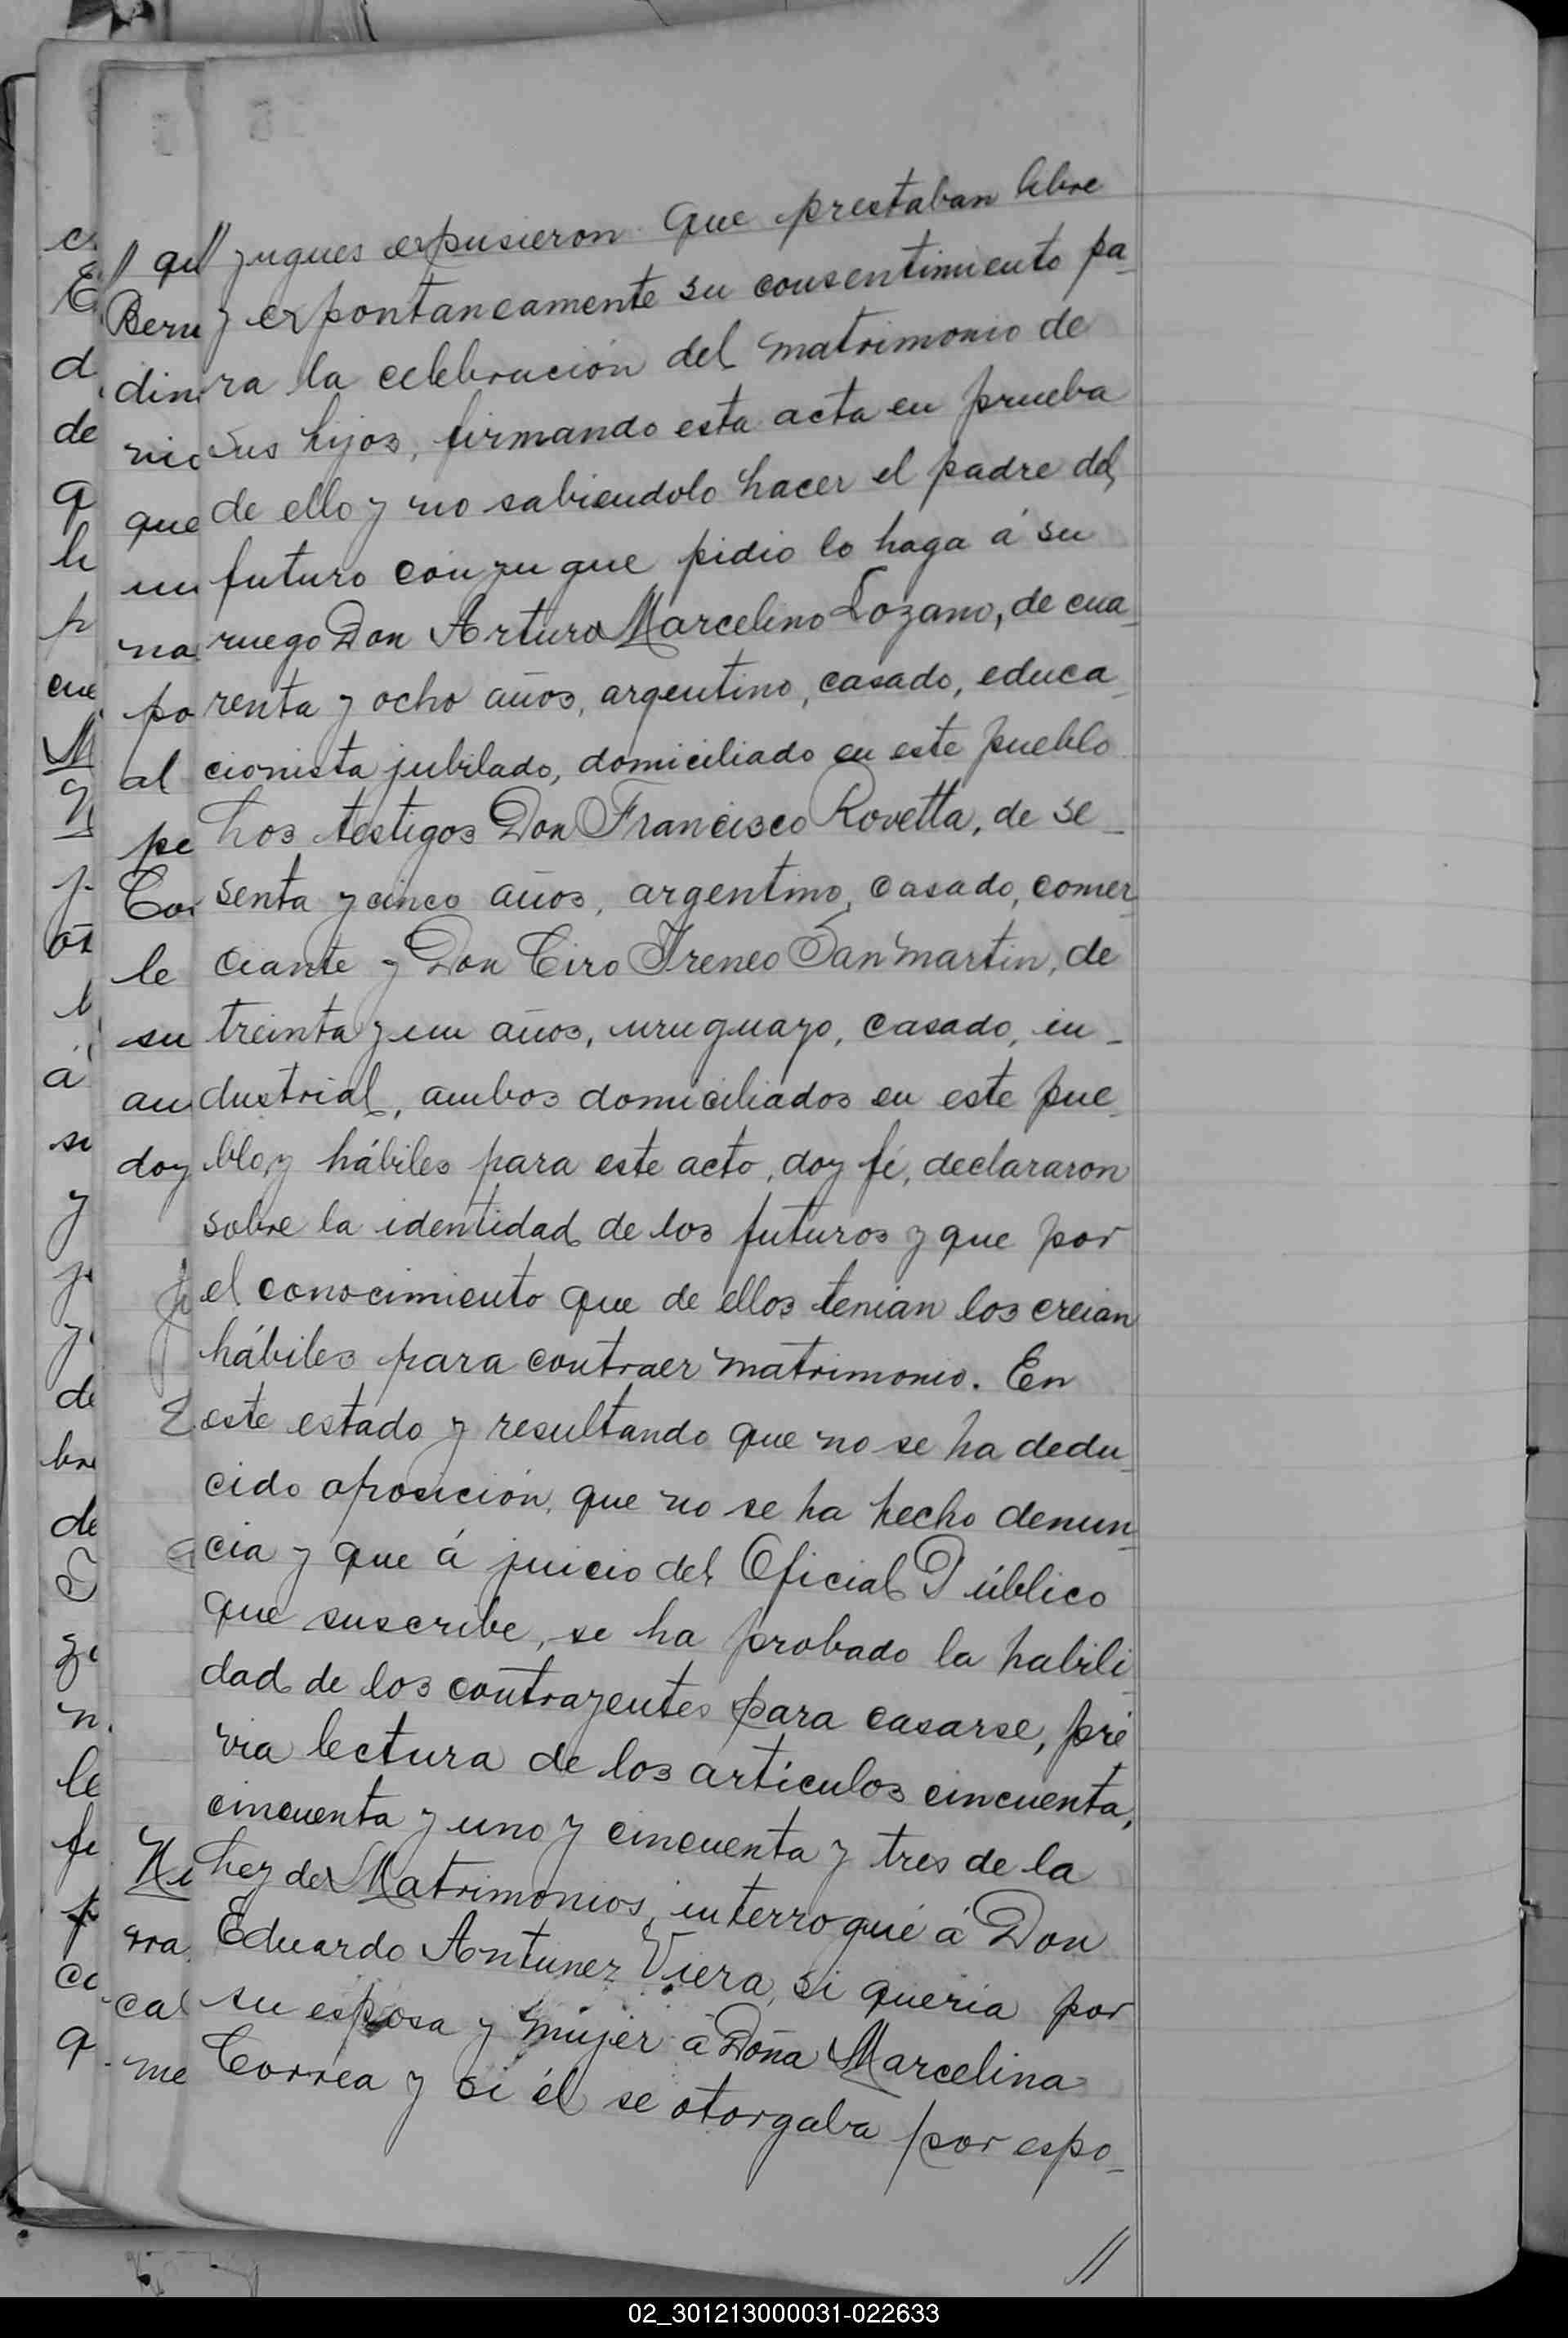 // yugues expusieron: Que prestaban libre
y expontaneamente su consentimiento pa-
ra la celebración del matrimonio de
sus hijos, firmando esta acta en prueba
de ello y no sabiendolo hacer el padre del
futuro conyugue pidió lo haga á su
ruego Don Arturo Marcelino Lozano, de cua-
renta y ocho años, argentino, casado, educa-
cionista jubilado, domiciliado en este pueblo
Los testigos Don Francisco Rovetta, de se-
senta y cinco años, argentino, casado, comer-
ciante y Don Ciro Ireneo San martin, de
treinta y un años, uruguayo, casado, in-
dustrial, ambos domiciliados en este pue-
blo y hábiles para este acto, doy fé, declararon
sobre la identidad de los futuros y que por
el conocimiento que de ellos tenian los creian
hábiles para contraer matrimonio. En
este estado y resultando que no se ha dedu-
cido oposición, que no se ha hecho denun-
cia y que á juicio del Oficial Público
que suscribe, se ha probado la habili-
dad de los contrayentes para casarse, pré-
via lectura de los artículos cincuenta,
cincuenta y uno y cincuenta y tres de la
Ley de Matrimonios, interrogué á Don
Eduardo Antunez Viera, si queria por
su esposa y mujer á Doña Marcelina
Correa y si él se otorgaba por espo-
//
02_301213000031-022633